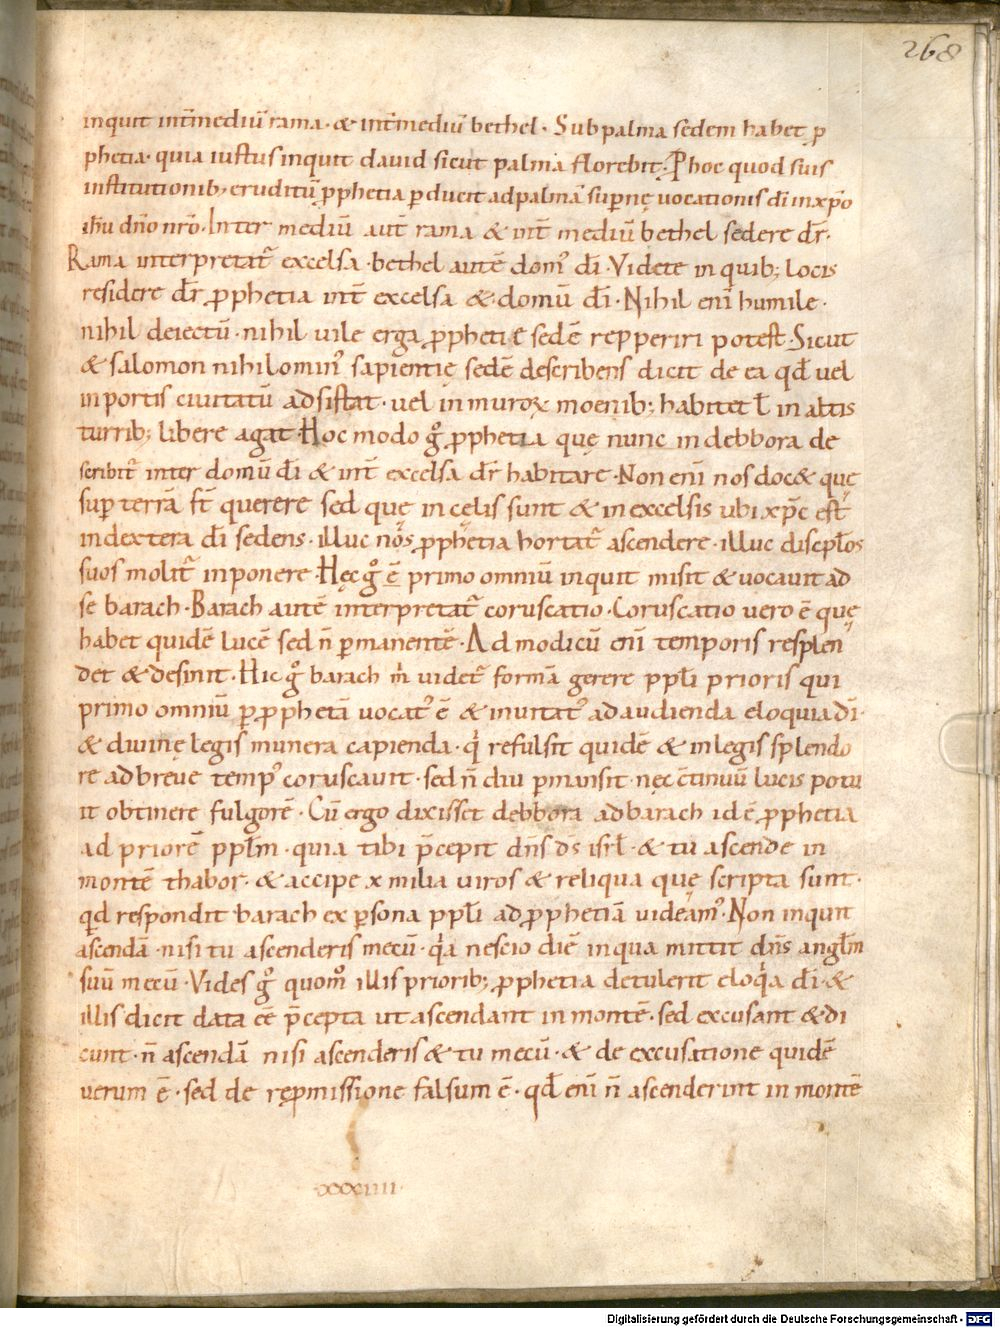 268
inquit int̄mediū rama · & int̄mediū bethel · Sub palma sedem habet ꝓ
phetia · quia iustus inquit david sicut palma florebit · P hoc quod suis
institutionib; eruditū ꝓphetia ꝑducit ad palmā supernę vocationis dī in xp̄o
ihū dn̄o nr̄o · Inter mediū aut̄ rama & int̄ mediū bethel sedere dr̄ ·
Rama interpretat᷑ excelsa · bethel autē domꝰ dī · Videte in quib; locis
residere dr̄ ꝓphetia int̄ excelsa & domū dī · Nihil enī humile ·
nihil deiectū · nihil vile erga ꝓphetię sedē repperiri potest · Sicut
& salomon nihilominꝰ sapientię sedē describens dicit de ea qd̄ vel
in portis civitatū adsistat · vel in muroꝝ moenib; habitet ł in altis
turrib; libere agat · Hoc modo gͦ ꝓphetia quę nunc in debbora de
scribit᷑ inter domū dī & int̄ excelsa dr̄ habitare · Non enī nos doc& quę
sup terrā st̄ querere sed quę in cęlis sunt & in excelsis ubi xp̄c est
in dextera dī sedens · illuc nos ꝓphetia hortat᷑ ascendere · illuc discipl̄os
suos molit᷑ inponere · Hęc gͦ ē primo omniū inquit misit & vocavit ad
se barach · Barach autē interpretat᷑ coruscatio · Coruscatio vero ē quę
habet quidē lucē sed n̄ ꝑmanentē · Ad modicū enī temporis resplen
det & desinit · Hic gͦ barach m̍ videt᷑ formā gerere ppl̄i prioris qui
primo omniū ꝑ ꝓphetā vocatꝰ ē & invitatꝰ ad audienda eloquia dī ·
& divinę legis munera capienda · q̍ refulsit quidē & in legis splendo
re ad breve tempꝰ coruscavit · sed n̄ diu ꝑmansit · nęc c̄tinuū lucis potu
it obtinere fulgorē · Cū ergo dixisset debbora ad barach id ē ꝓphetia
ad priorē ppl̄m · quia tibi p̄cepit dn̄s ds̄ isrl̄ · & tu ascende in
montē thabor · & accipe x milia viros & reliqua quę scripta sunt ·
qd respondit barach ex ꝑsona ppl̄i ad ꝓphetiā videamꝰ · Non inquit
ascendā · nisi tu ascenderis mecū · q̍a nescio diē in qua mittit dn̄s angl̄m
suū mecū · Vides gͦ quomͦ illis priorib; ꝓphetia detulerit eloq̍a dī · &
illis dicit data eē p̄cepta ut ascendant in montē · sed excusant & di
cunt · n̄ ascendā nisi ascenderis & tu mecū · & de excusatione quidē
verum ē · sed de rępmissione falsum ē · qd̄ enī n̄ ascenderint in montē
·xxxiiii·
Digitalisierung gefördert durch die Deutsche Forschungsgemeinschaft - DFG